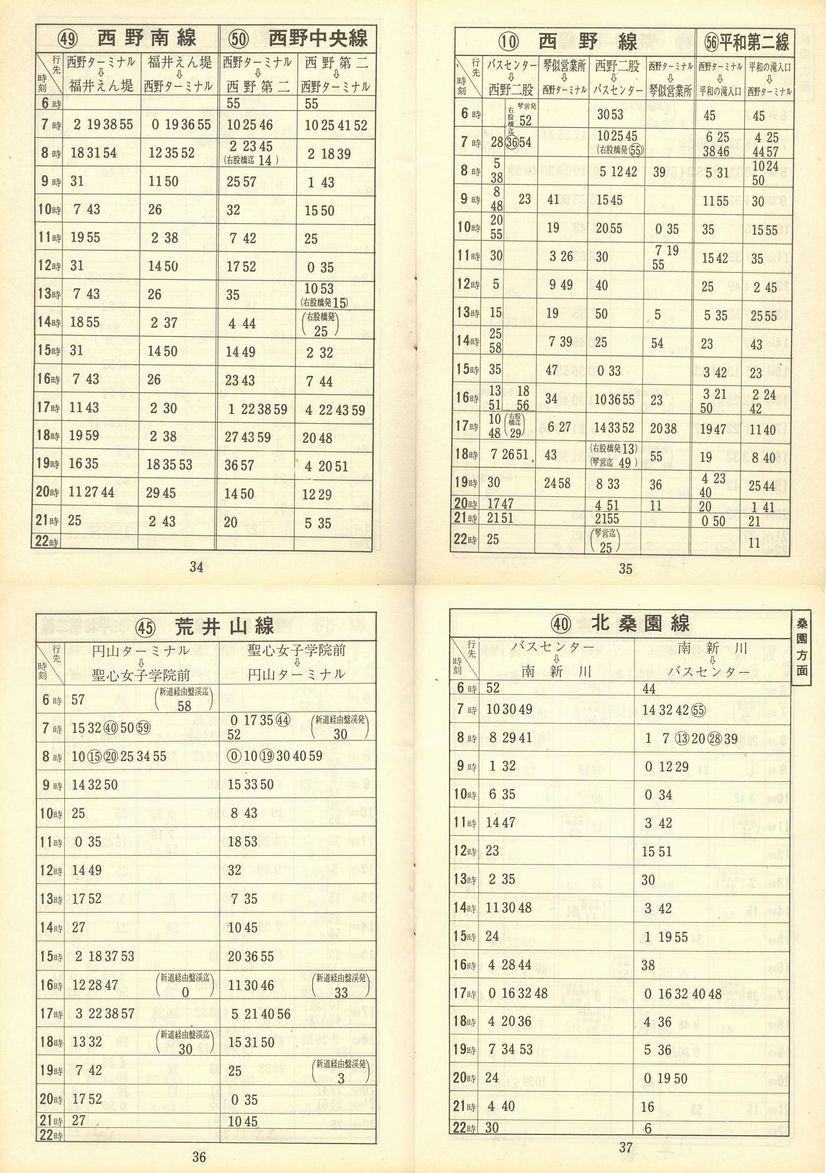 ㊾ 西野南線 ㊿ 西野中央線
行先 時刻 西野ターミナル⇩福井えん堤 福井えん堤⇩西野ターミナル 西野ターミナル⇩西野第二 西野第二⇩西野ターミナル
6時 55 55
7時 2 19 38 55 0 19 36 55 10 25 46 10 25 41 52
8時 18 31 54 12 35 52 2 23 45 (右股橋迄 14) 2 18 39
9時 31 11 50 25 57 1 43
10時 7 43 26 32 15 50
11時 19 55 2 38 7 42 25
12時 31 14 50 17 52 0 35
13時 7 43 26 35 10 53 (右股橋発 15)
14時 18 55 2 37 4 44 (右股橋発 25)
15時 31 14 50 14 49 2 32
16時 7 43 26 23 43 7 44
17時 11 43 2 30 1 22 38 59 4 22 43 59
18時 19 59 2 38 27 43 59 20 48
19時 16 35 18 35 53 36 57 4 20 51
20時 11 27 44 29 45 14 50 12 29
21時 25 2 43 20 5 35
22時
34
⑩ 西野線 56 平和第二線
行先 時刻 バスセンター⇩西野二股 琴似営業所⇩西野ターミナル 西野二股⇩バスセンター 西野ターミナル⇩琴似営業所 西野ターミナル⇩平和の滝入口 平和の滝入口⇩西野ターミナル
6時 右股橋迄 琴営発 52 30 53 45 45
7時 28 ㊱ 54 10 25 45 (右股橋発 55) 6 25 38 46 4 25 44 57
8時 5 38 5 12 42 39 5 31 10 24 50
9時 8 48 23 41 15 45 11 55 30
10時 20 55 19 20 55 0 35 35 15 55
11時 30 3 26 30 7 19 55 15 42 35
12時 5 9 49 40 25 2 45
13時 15 19 50 5 5 35 25 55
14時 25 58 7 39 25 54 23 43
15時 35 47 0 33 3 42 23
16時 13 51 18 56 34 10 36 55 23 3 21 50 2 24 42
17時 10 48 (右股橋迄 29) 6 27 14 33 52 20 38 19 47 11 40
18時 7 26 51 43 (右股橋発 13) (琴営迄 49) 55 19 8 40
19時 30 24 58 8 33 36 4 23 40 25 44
20時 17 47 4 51 11 20 1 41
21時 21 51 21 55 0 50 21
22時 25 (琴営迄 25) 11
35
㊺ 荒井山線
行先 時刻 円山ターミナル⇩聖心女子学院前 聖心女子学院前⇩円山ターミナル
6時 57 (新道経由盤渓迄 58)
7時 15 32 ㊵ 50 59 0 17 35 ㊹ 52 (新道経由盤渓発 30)
8時 10 ⑮ ⑳ 25 34 55 ⓪ 10 ⑲ 30 40 59
9時 14 32 50 15 33 50
10時 25 8 43
11時 0 35 18 53
12時 14 49 32
13時 17 52 7 35
14時 27 10 45
15時 2 18 37 53 20 36 55
16時 12 28 47 (新道経由盤渓迄 0) 11 30 46 (新道経由盤渓発 33)
17時 3 22 38 57 5 21 40 56
18時 13 32 (新道経由盤渓迄 30) 15 31 50
19時 7 42 25 (新道経由盤渓発 3)
20時 17 52 0 35
21時 27 10 45
22時
36
㊵ 北桑園線
桑園方面
行先 時刻 バスセンター⇩南新川 南新川⇩バスセンター
6時 52 44
7時 10 30 49 14 32 42 55
8時 8 29 41 1 7 ⑬ 20 ㉘ 39
9時 1 32 0 12 29
10時 6 35 0 34
11時 14 47 3 42
12時 23 15 51
13時 2 35 30
14時 11 30 48 3 42
15時 24 1 19 55
16時 4 28 44 38
17時 0 16 32 48 0 16 32 40 48
18時 4 20 36 4 36
19時 7 34 53 5 36
20時 24 0 19 50
21時 4 40 16
22時 30 6
37